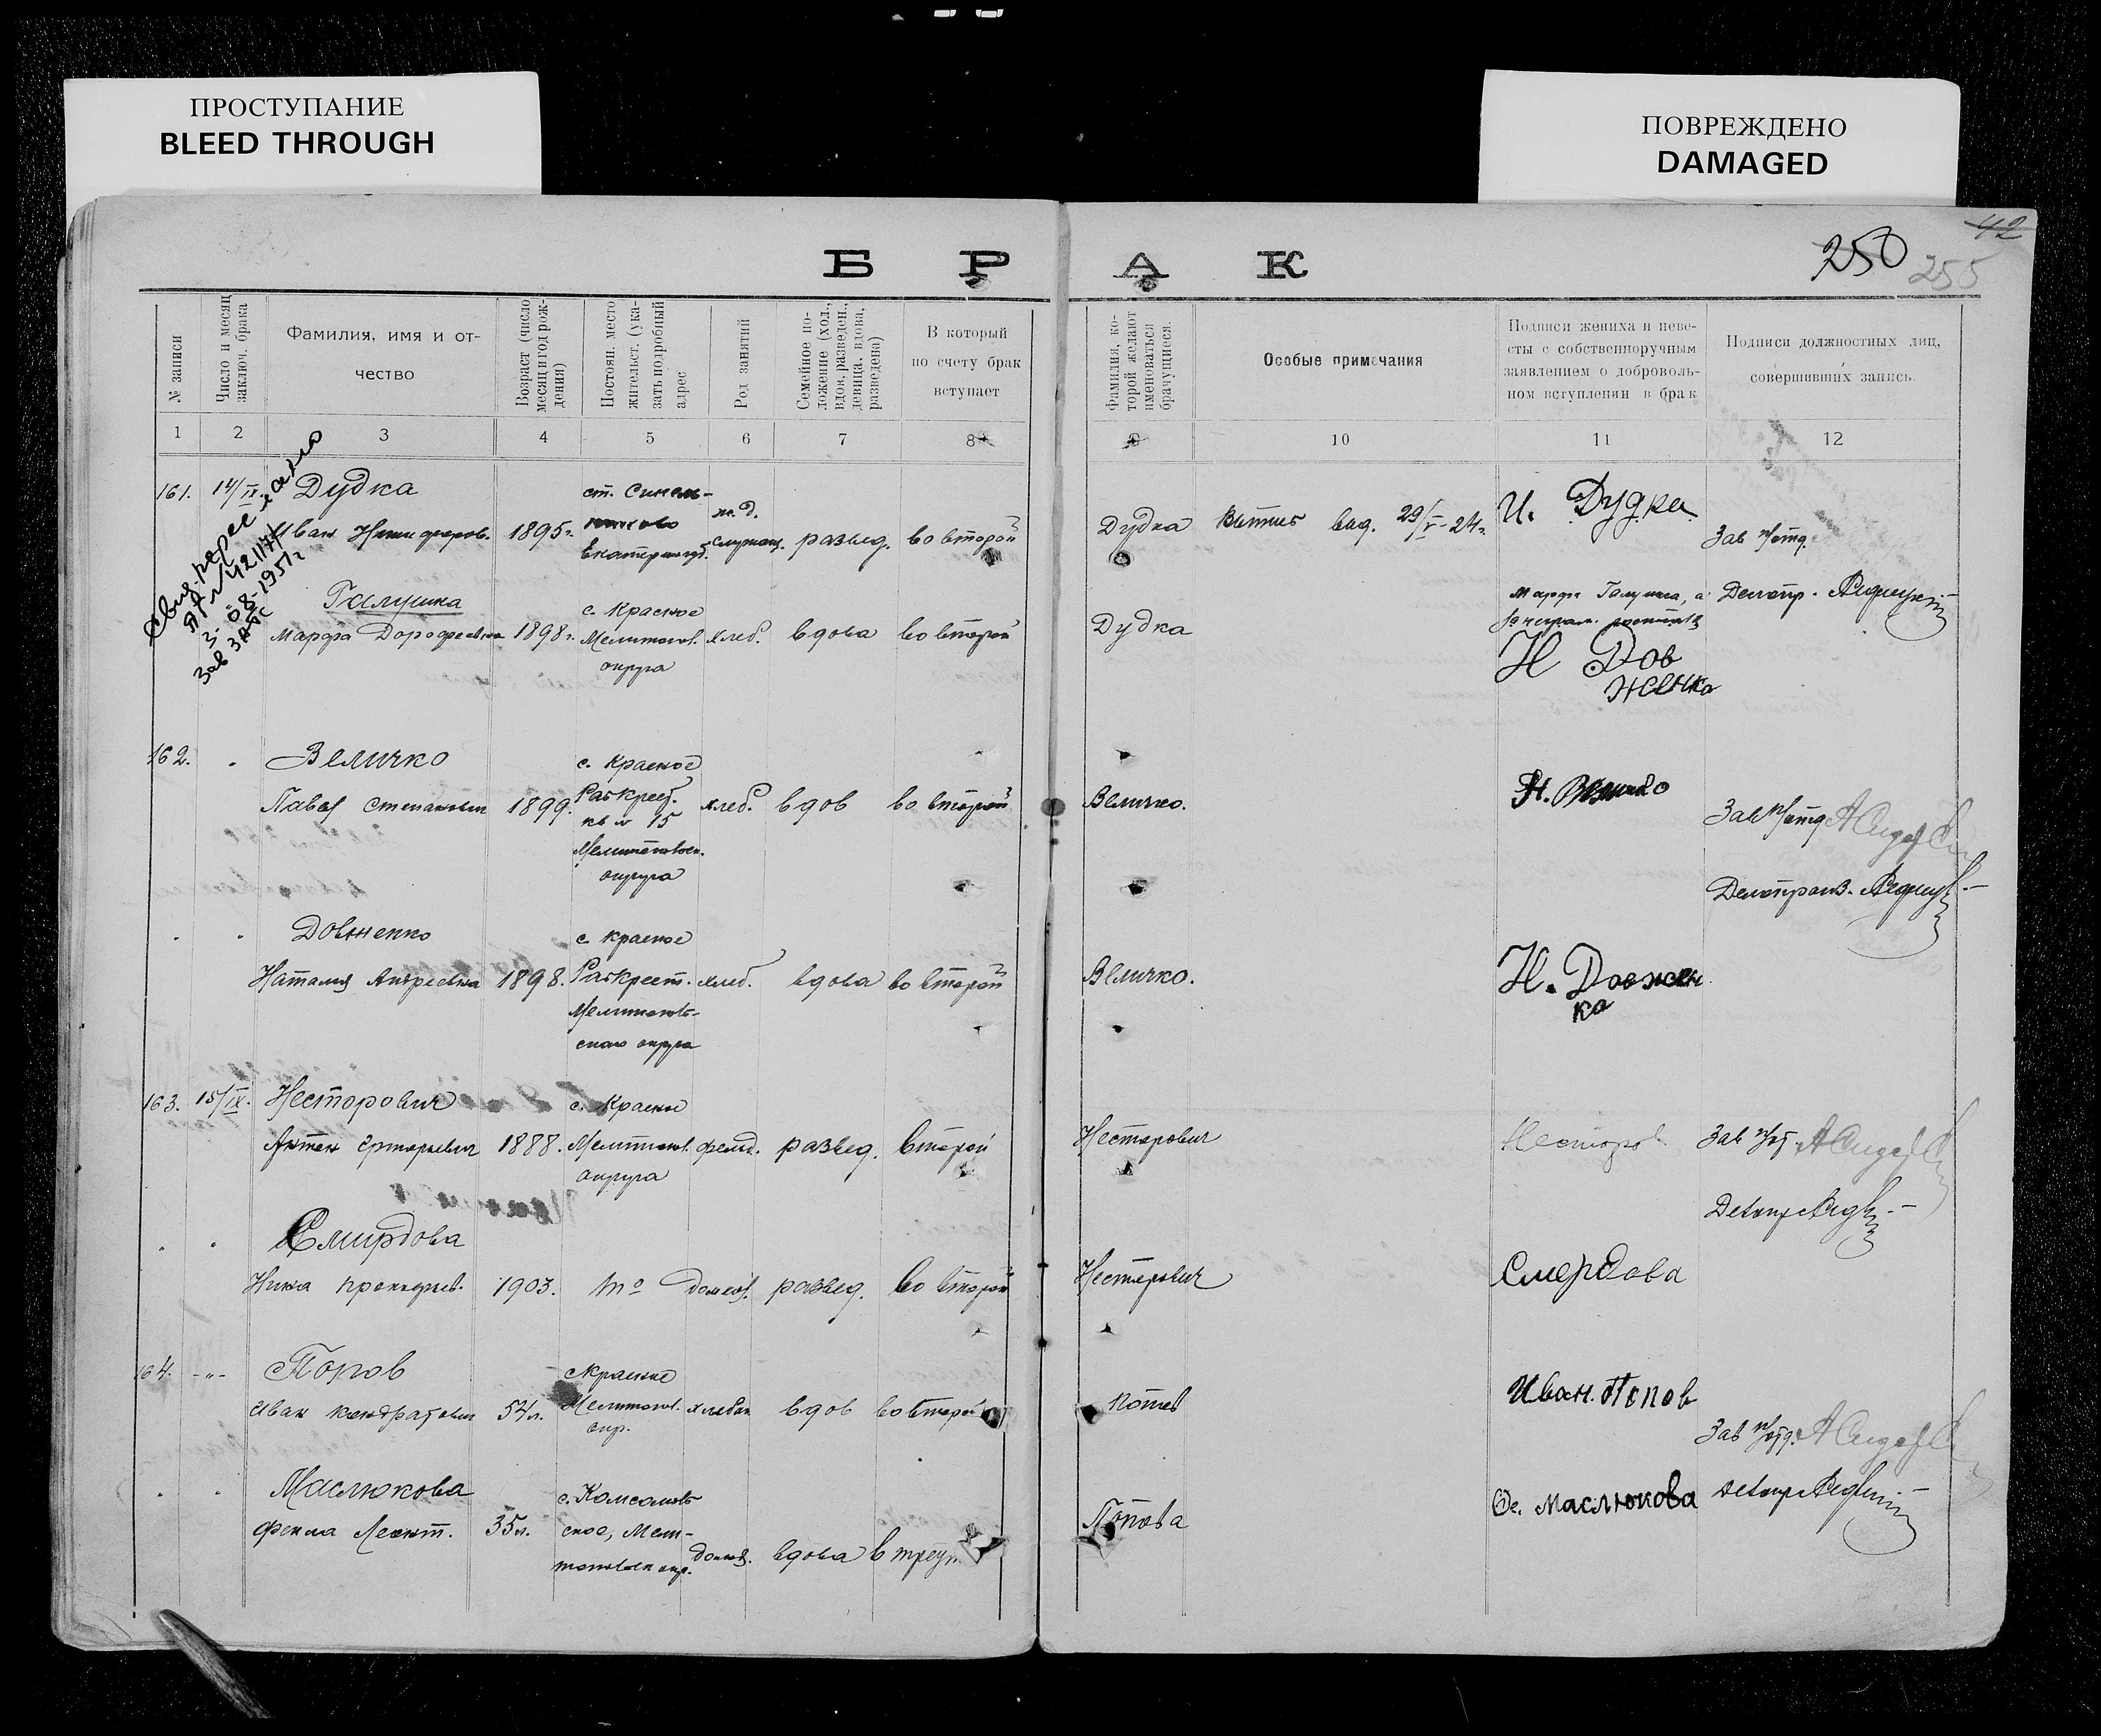 ПРОСТУПАНИЕ
BLEED THROUGH
ПОВРЕЖДЕНО
DAMAGED
42
250
255
Б Р А К
№ записи
Число и месяц
заключ. брака
Фамилия, имя и от-
чество
Возраст (число
месяц и год рож-
дения)
Постоян. место
жительст. (ука-
зать подробный
адрес
Род занятий
Семейное по-
ложение (хол.,
вдов. разведен.,
девица, вдова,
разведена)
В который
по счету брак
вступает
Фамилия, ко-
торой желают
именоваться
брачущиеся.
Особые примечания
Подписи жениха и неве-
сты с собственноручным
заявлением о доброволь-
ном вступлении в брак
Подписи должностных лиц,
совершивших запись.
1 2 3 4 5 6 7 8 9 10 11 12
3-08-1951г
Зав ЗАГС
161. 14/IX. Дудка
ст. Синель-
никово
ж.д.
Иван 1895г. служащ. развед. во второй
Дудка
Выпись выд. 29/V-24г.
И. Дудка
Зав п/отд.
Галушка
Марфа Дорофеевна 1898г.
с. Красное
Мелитопов.
округа
хлеб. вдова во второй
Дудка
Марфа Галушка, а
Делопр.
Н Дов
женка
162. Величко
Павел Степанович 1899.
с. Красное
Раскрест.
кв № 15
Мелитопольск.
округа
хлеб. вдов во второй
Величко.
П. Величко
Зав п/отд
Делопроиз.
Довженко
Наталия Андреевна 1898.
с. Красное
Раскрест.
Мелитополь-
ского округа
хлеб. вдова во второй
Величко.
Н. Довжен
ка
163. 15/IX. Несторович
Антон 1888.
с. Красное
Мелитопол.
округа
развед. второй
Несторович
Зав п/отд
Смирдова
Нина Прокофьев. 1903. то домох. развед. во второй
Несторович
Смердова
164. -"- Попов
Иван Кондратович 54л.
с Красное
Мелитопол.
окр.
хлебоп. вдов во второй
Иван. Попов
Зав п/отд.
Маслюкова
Фекла Леонт. 35л.
с. Комсомоль-
ское, Мели-
топольск окр.
домох. вдова в трет
Попова
Фе. Маслюкова